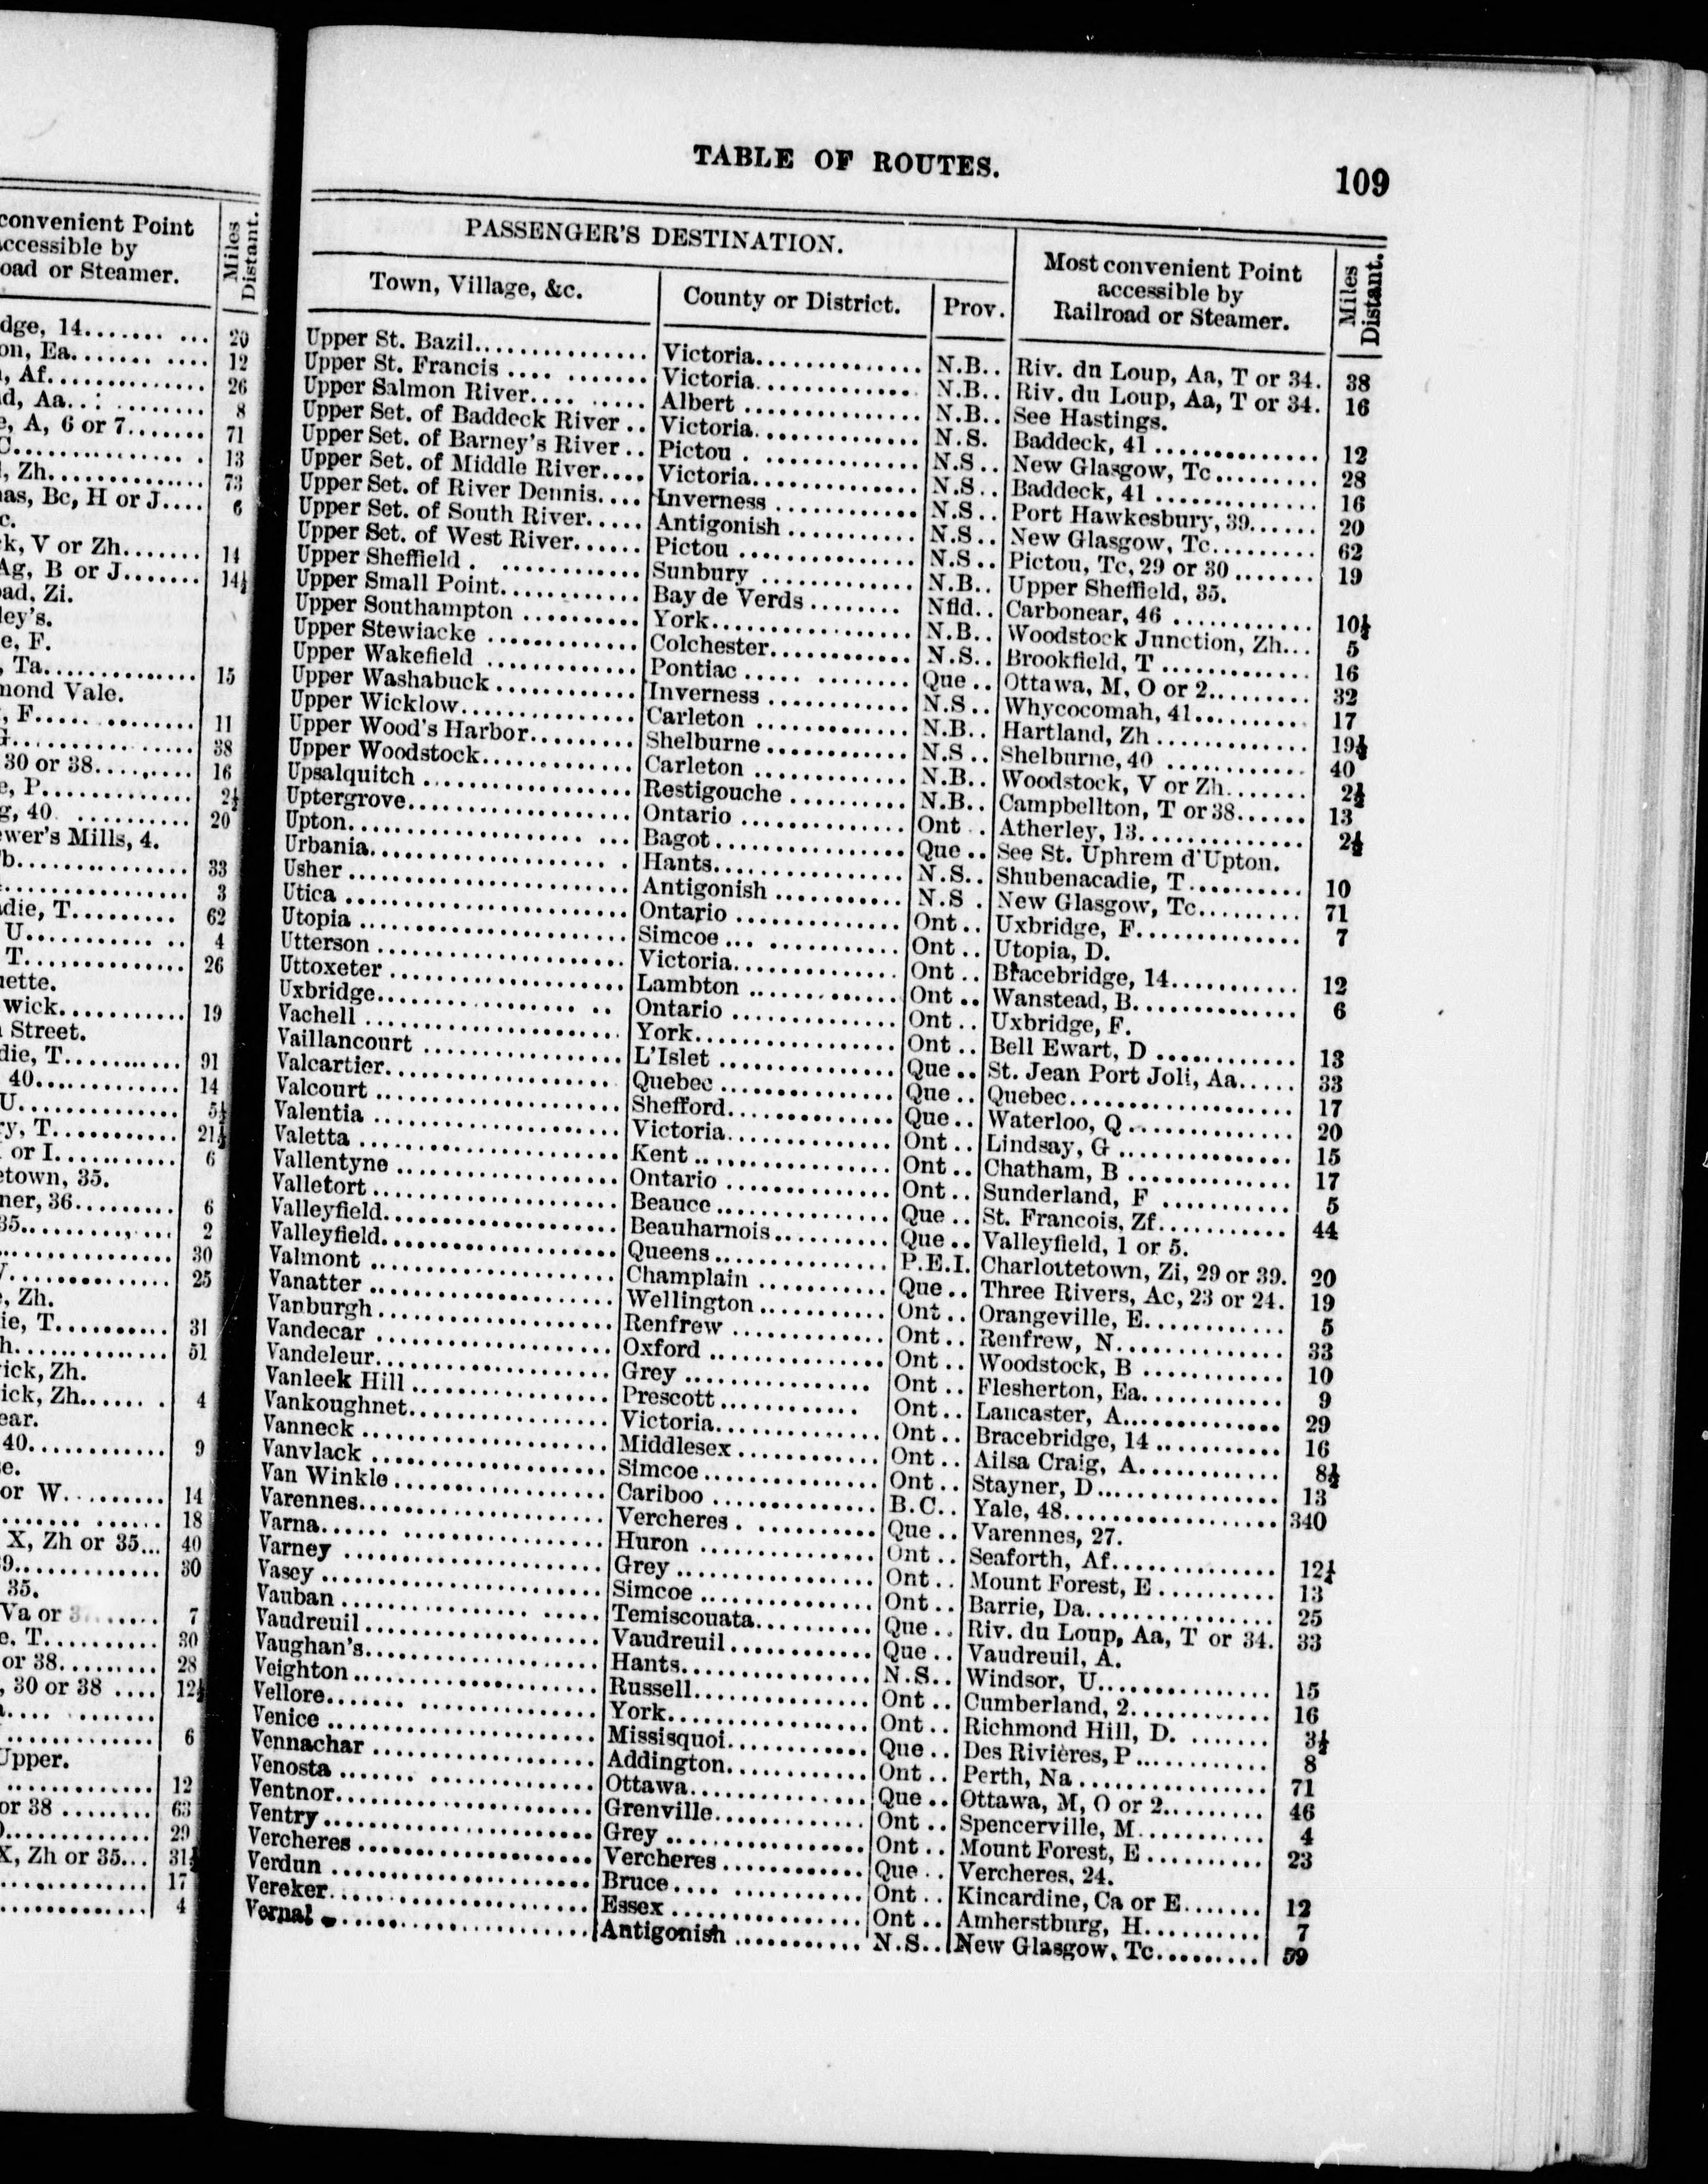 convenient Point
accessible by
oad or Steamer.
Miles Distant.
dge, 14........ ... 20
on, Ea........ .... 12
, Af.............. 26
d, Aa..: ......... 8
e, A, 6 or 7....... 71
C................ . 13
, Zh............... 73
as, Bc, H or J.... 6
c.
k, V or Zh....... 14
Ag, B or J....... 14½
ad, Zi.
ley's.
e, F.
, Ta............... 15
mond Vale.
, F..... ......... 11
G................. 38
30 or 38.......... 16
e, P.............. 2½
g, 40. ........... 20
ewer's Mills, 4.
b................ 33
................. 3
die, T.......... 62
U........... .. 4
T............... 26
ette.
wick............ 19
Street.
die, T........... 91
40.............. 14
U................ 5½
ry, T............ 21½
or I............ 6
etown, 35.
ner, 36.......... 6
35............... 2
................. 30
................. 25
, Zh.
ie, T........... 31
h............... 51
ick, Zh.
ick, Zh...... . 4
ear.
40............. 9
e.
or W. ......... 14
........ ...... 18
X, Zh or 35... 40
9............. 30
35.
Va or 3 ...... 7
e. T.......... 30
or 38.......... 28
, 30 or 38 .... 12½
.............. 6
Upper.
.............. 12
or 38 ........ 63
.............. 29
X, Zh or 35... 31½
.............. 17
.............. 4
TABLE OF ROUTES. 109
PASSENGER'S DESTINATION.
Town, Village, &c. County or District. Prov. Most convenient Point accessible by Railroad or Steamer. Miles Distant.
Upper St. Bazil............... Victoria............... N.B.. Riv. du Loup, Aa, T or 34. 38
Upper St. Francis .... ........ Victoria............... N.B.. Riv. du Loup, Aa, T or 34. 16
Upper Salmon River.... ..... Albert ............... N.B.. See Hastings.
Upper Set. of Baddeck River .. Victoria............... N.S. Baddeck, 41 .............. 12
Upper Set. of Barney's River .. Pictou . ............. N.S.. New Glasgow, Tc......... 28
Upper Set. of Middle River.... Victoria............... N.S.. Baddeck, 41 .............. 16
Upper Set. of River Dennis.... Inverness ............ N.S.. Port Hawkesbury, 39...... 20
Upper Set. of South River..... Antigonish ........... N.S.. New Glasgow, Tc......... 62
Upper Set. of West River...... Pictou ............... N.S.. Pictou, Tc, 29 or 30 ....... 19
Upper Sheffield . ............ Sunbury ............. N.B.. Upper Sheffield, 35.
Upper Small Point............ Bay de Verds ........ Nfld.. Carbonear, 46 ............ 10½
Upper Southampton .......... York................. N.B.. Woodstock Junction, Zh... 5
Upper Stewiacke ............ Colchester............ N.S.. Brookfield, T ............. 16
Upper Wakefield ............ Pontiac ..... ........ Que .. Ottawa, M, O or 2......... 32
Upper Washabuck ............ Inverness ............ N.S.. Whycocomah, 41.......... 17
Upper Wicklow............... Carleton ............. N.B.. Hartland, Zh ............. 19½
Upper Wood's Harbor......... Shelburne ............ N.S .. Shelburne, 40 ............ 40
Upper Woodstock............. Carleton ............. N.B.. Woodstock, V or Zh....... 2½
Upsalquitch .................. Restigouche .......... N.B.. Campbellton, T or 38...... 13
Uptergrove................... Ontario .............. Ont .. Atherley, 13.............. 2½
Upton.................... ... Bagot................. Que .. See St. Uphrem d'Upton.
Urbania..................... . Hants................. N.S.. Shubenacadie, T.......... 10
Usher ........................ Antigonish ........... N.S . New Glasgow, Tc......... 71
Utica ........................ Ontario .............. Ont .. Uxbridge, F.............. 7
Utopia ....................... Simcoe ... ........... Ont .. Utopia, D.
Utterson ..................... Victoria.............. Ont .. Bracebridge, 14........... 12
Uttoxeter .................... Lambton ............. Ont .. Wanstead, B.............. 6
Uxbridge.................. .. Ontario .............. Ont .. Uxbridge, F.
Vachell ...................... York................. Ont .. Bell Ewart, D ............ 13
Vaillancourt ................. L'Islet ............... Que .. St. Jean Port Joli, Aa..... 33
Valcartier.................... Quebec .............. Que .. Quebec................... 17
Valcourt ..................... Shefford.............. Que.. Waterloo, Q .............. 20
Valentia ..................... Victoria.............. Ont .. Lindsay, G ............... 15
Valetta ...................... Kent ................. Ont .. Chatham, B .............. 17
Vallentyne ................... Ontario .............. Ont .. Sunderland, F ........... 5
Valletort..................... Beauce ............... Que .. St. Francois, Zf........... 44
Valleyfield................... Beauharnois.......... Que .. Valleyfield, 1 or 5.
Valleyfield................... Queens............... P.E.I. Charlottetown, Zi, 29 or 39. 20
Valmont ..................... Champlain ........... Que .. Three Rivers, Ac, 23 or 24. 19
Vanatter ..................... Wellington ........... Ont .. Orangeville, E............ 5
Vanburgh .................... Renfrew ............. Ont .. Renfrew, N............... 33
Vandecar .................... Oxford ............... Ont .. Woodstock, B ............ 10
Vandeleur.................... Grey ................. Ont .. Flesherton, Ea............ 9
Vanleek Hill ................. Prescott............. Ont.. Lancaster, A.............. 29
Vankoughnet................. Victoria.............. Ont .. Bracebridge, 14 ........... 16
Vanneck ..................... Middlesex ............ Ont .. Ailsa Craig, A............ 8½
Vanvlack .................... Simcoe ............... Ont .. Stayner, D ................ 13
Van Winkle .................. Cariboo .............. B.C.. Yale, 48................... 340
Varennes..................... Vercheres . ........... Que .. Varennes, 27.
Varna...... ................. Huron ............... Ont .. Seaforth, Af.............. 12½
Varney ...................... Grey ................. Ont .. Mount Forest, E .......... 13
Vasey ....................... Simcoe ............... Ont .. Barrie, Da................ 25
Vauban ................ ..... Temiscouata.......... Que .. Riv. du Loup, Aa, T or 34. 33
Vaudreuil .................... Vaudreuil ............ Que .. Vaudreuil, A.
Vaughan's.................... Hants................ N.S.. Windsor, U............... 15
Veighton ..................... Russell............... Ont .. Cumberland, 2............ 16
Vellore....... ................ York................. Ont .. Richmond Hill, D. ....... 3½
Venice ....................... Missisquoi............ Que .. Des Rivières, P ........... 8
Vennachar ................... Addington............ Ont .. Perth, Na ................. 71
Venosta ....... .............. Ottawa............... Que .. Ottawa, M, O or 2......... 46
Ventnor...................... Grenville............. Ont .. Spencerville, M............ 4
Ventry....................... Grey ................. Ont .. Mount Forest, E .......... 23
Vercheres .................... Vercheres ............ Que .. Vercheres, 24.
Verdun ...................... Bruce.... ............ Ont .. Kincardine, Ca or E....... 12
Vereker...................... Essex ................ Ont .. Amherstburg, H.......... 7
Vernal ....................... Antigonish ........... N.S.. New Glasgow, Tc.......... 59